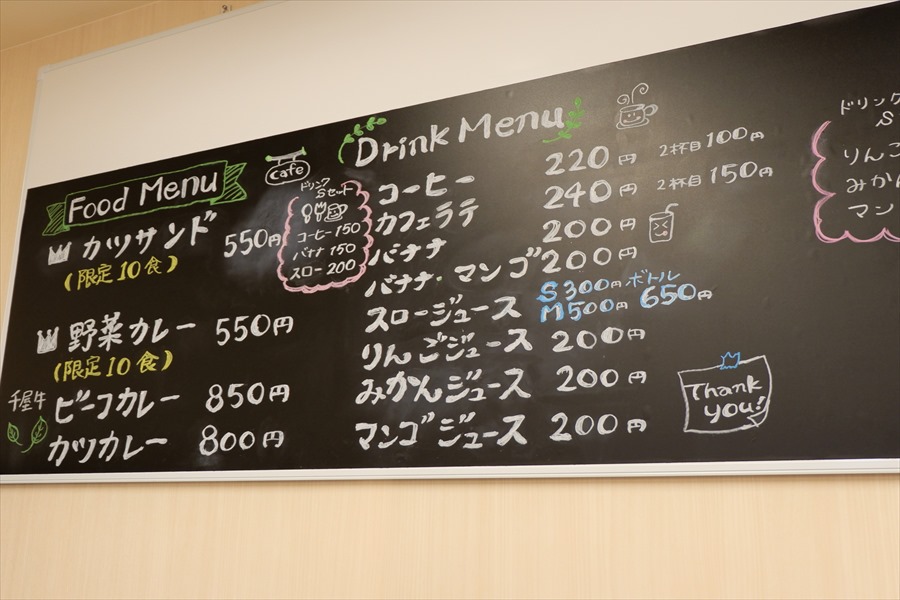 Food Menu
カツサンド 550円
(限定10食)
野菜カレー 550円
(限定10食)
千屋牛
ビーフカレー 850円
カツカレー 800円
cafe
ドリンク
Sセット
コーヒー 150
バナナ 150
スロー 200
Drink Menu
コーヒー 220円 2杯目100円
カフェラテ 240円 2杯目150円
バナナ 200円
バナナ・マンゴ 200円
スロージュース S300円 ボトル
M500円 650円
りんごジュース 200円
みかんジュース 200円
マンゴジュース 200円
Thank
you!
ドリンク
S
りんご
みかん
マン